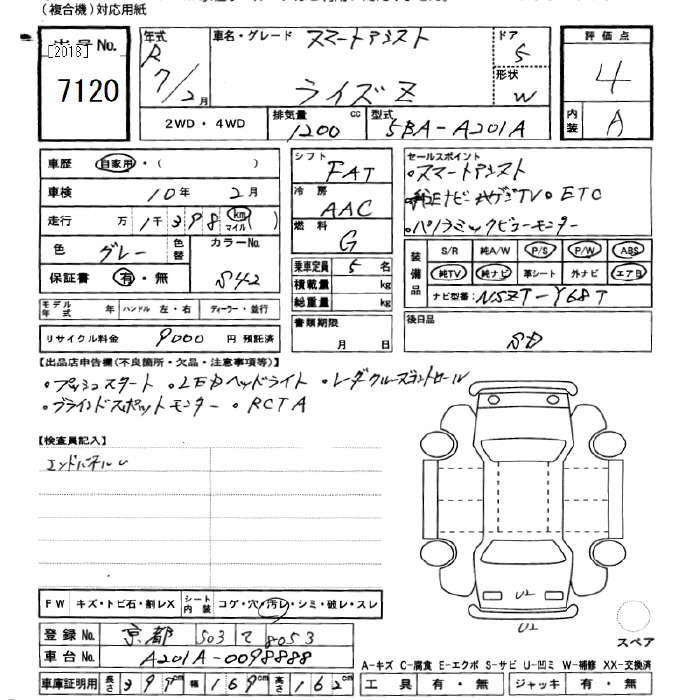 (複合機)対応用紙
出品No. [2013] 7120
年式 R 7/2月
車名・グレード スマートアシスト ライズ Z
ドア 5
形状 W
評価点 4
内装 A
2WD・4WD
排気量 1200 cc
型式 5BA-A201A
車歴 自家用・( )
車検 10年 2月
走行 万 1千398 km マイル ( )
色 グレー 色替 カラーNo. S42
保証書 有・無
シフト FAT
冷房 AAC
燃料 G
乗車定員 5 名
積載量 kg
総重量 kg
セールスポイント
・スマートアシスト
・純正ナビ・地デジTV・ETC
・パノラミックビューモニター
装備品 S/R 純A/W P/S P/W ABS
純TV 純ナビ 革シート 外ナビ エアB
ナビ型番: NSZT-Y68T
モデル年式 年 ハンドル 左・右 ディーラー・並行
リサイクル料金 9000 円 預託済
書類期限 月 日
後日品 SD
【出品店申告欄(不良箇所・欠品・注意事項等)】
・プッシュスタート ・LEDヘッドライト ・レーダクルーズコントロール
・ブラインドスポットモニター ・RCTA
【検査員記入】
エンドパネルU
U2
U2
スペア
FW キズ・トビ石・割レX シート内装 コゲ・穴・汚レ・シミ・破レ・スレ
登録No. 京都 503 て 8053
車台No. A201A-0098888
車庫証明用 長さ 399cm 幅 169cm 高さ 162cm
A-キズ C-腐食 E-エクボ S-サビ U-凹ミ W-補修 XX-交換済
工具 有・無 ジャッキ 有・無